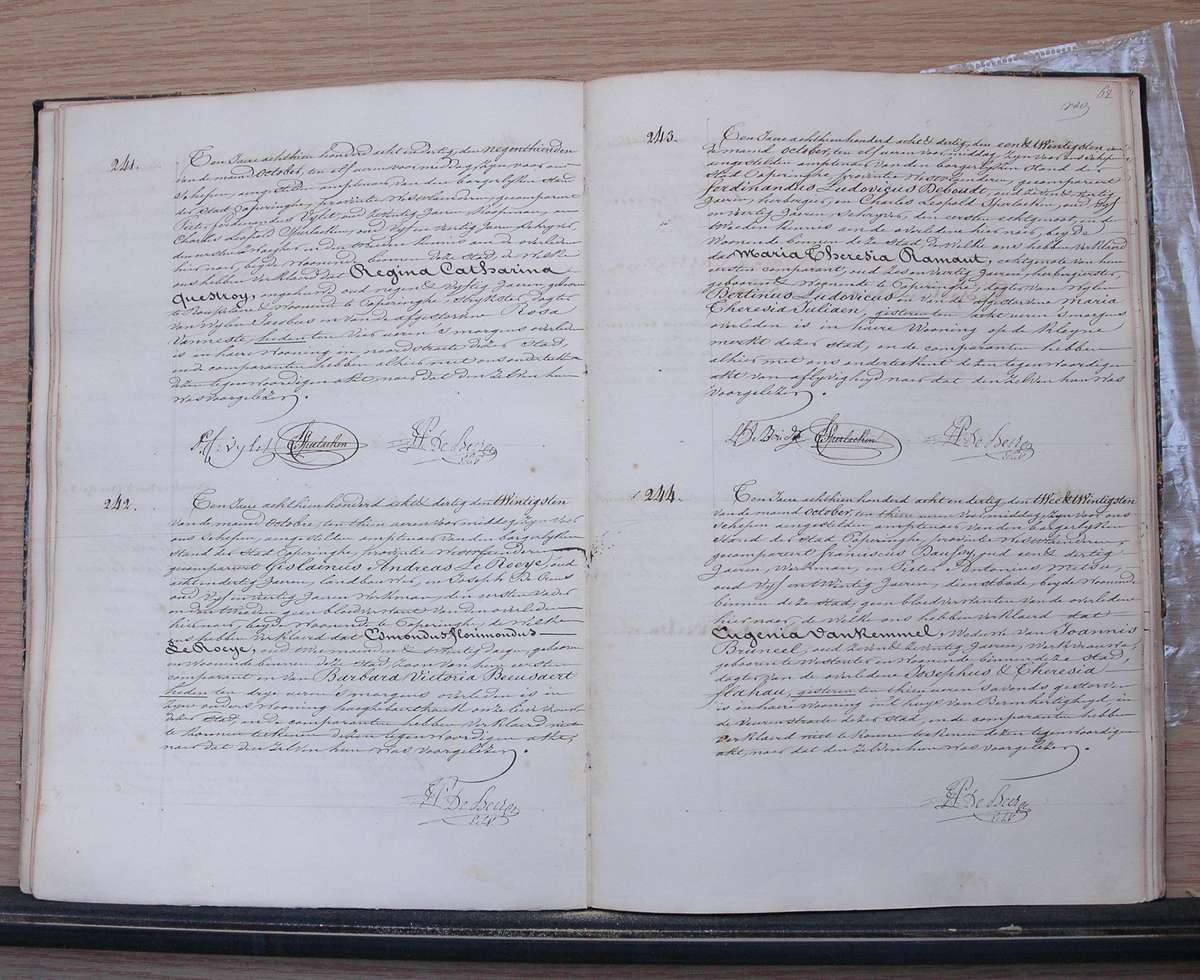 241.
Ten Jaere achthien honderd acht en dertig, den negenthienden
van de maend October, ten elf ueren voor middag, zyn voor ons
Schepen aengestelden amptenaer van den burgerlyken stand
der Stad Poperinghe, provintie Westvlaenderen, gecompareert
Charles Leopold Sperlaeken, oud vyf en veertig Jaeren, Schryver
den eersten en den tweeden kennis aen de overleden
hier naer, beyde woonende binnen deze Stad, de welke
ons hebben verklaerd dat Regina Catharina
Questroy, ongehuwd oud negen & vyftig Jaeren, geboren
te Rousselaere en woonende te Poperinghe, dogter
van wylen Jacobus en van de afgestorvene Rosa
Vanneste, heden ten vier ueren 's morgens overleden
is in haere wooning in noordstraete dezer Stad,
en de comparanten hebben alhier met ons onderteekent
dezen tegenwoordigen akt, naer dat den zelven hun
was voorgelezen.
Sperlaeken
242.
Ten Jaere achthien honderd acht & dertig, den twintigsten
van de maend October, ten thien ueren voor middag, zyn voor
ons Schepen, aengestelden amptenaer van den burgerlyken
Stand der Stad Poperinghe, provintie Westvlaenderen
gecompareert Gislainus Andreas Le Roeye, oud
acht en dertig Jaeren, landbouwer, en Joseph De Ceus
oud vyf en veertig Jaeren werkman, den eersten vader
en den tweeden geen bloedverwant van den overleden
hier naer, beyde woonende te Poperinghe, de welke
ons hebben verklaerd dat Esmondus Floumondus
Le Roeye, oud twee maenden & twintig dagen, geboren
en woonende binnen deze Stad, zoon van hun eersten
comparant en van Barbara Victoria Beeusaert
heden ten drye ueren 's morgens overleden is in
zyns ouders wooning
dezer Stad, en de comparanten hebben verklaerd niet
te konnen teekenen dezen tegenwoordigen akte,
naer dat den zelven hun was voorgelezen.
62
243.
Ten Jaere achthien honderd acht & dertig, den een & twintigsten van
de maend October, ten elf ueren voor middag, zyn voor ons Schepen
aengestelden amptenaer van den burgerlyken stand der
Stad Poperinghe, provintie Westvlaenderen, gecompareert
Ferdinandus Ludovicus Deboudt, oud
Jaeren, herberger, en Charles Leopold Sperlaeken, oud vyf
en veertig Jaeren, Schryver, den eersten echtgenoot, en den
tweeden kennis aen de overleden hier naer, beyde
woonende binnen deze stad, de welke ons hebben verklaerd
dat Maria Theresia Ramaut, echtgenote van hun
eersten comparant, oud zes en veertig Jaeren, herbergierster,
geboren en woonende te Poperinghe, dogter van wylen
Bertinus Ludovicus en van de afgestorvene Maria
Theresia Juliaen, gisteren ten acht ueren 's morgens
overleden is in haere wooning op de
merkt dezer stad, en de comparanten hebben
alhier met ons onderteekent dezen tegenwoordigen
akt van aflyvigheyd naer dat den zelven hun was
voorgelezen.
Sperlaeken
244.
Ten Jaere achthien honderd acht en dertig, den twee & twintigsten
van de maend October, ten thien ueren voor middag, zyn voor ons
Schepen aengestelden amptenaer van den burgerlyken
Stand der stad Poperinghe, provintie Westvlaenderen,
gecompareert Franciscus oud een & dertig
Jaeren, werkman, en Pieter Antonius
oud vyf en twintig Jaeren, dienstbode, beyde woonende
binnen deze stad, geen bloedverwanten van de overleden
hier naer, de welke ons hebben verklaerd dat
Eugenia Vankemmel, weduwe van Joannes
Bruneel, oud zeven & zeventig Jaeren, werkvrouw,
geboren te Westouter en woonende binnen deze stad,
dogter van de overledene Josephus & Theresia
Flahau, gisteren ten thien ueren 's avonds gestorven
is in haere wooning in 't huys van Bermhertigheyd in
de veurenstraete dezer stad, en de comparanten hebben
verklaerd niet te konnen teekenen dezen tegenwoordigen
akt, naer dat den zelven hun was voorgelezen.